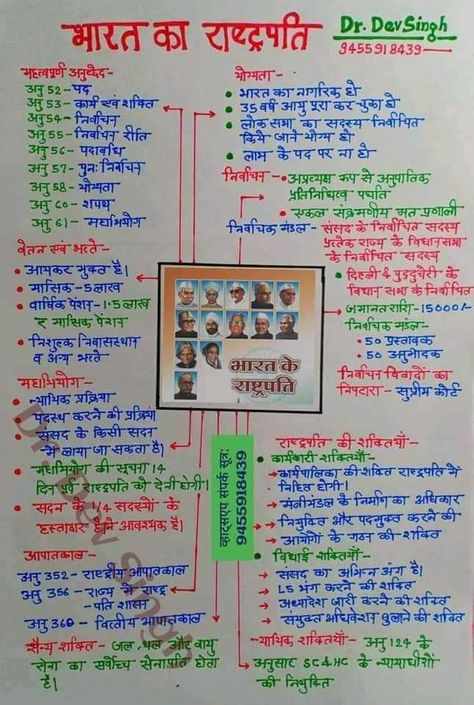 भारत का राष्ट्रपति
Dr. Dev Singh
9455918439
महत्वपूर्ण अनुच्छेद-
अनु 52- पद
अनु 53- कार्य एवं शक्ति
अनु 54- निर्वाचन
अनु 55- निर्वाचन रीति
अनु 56- पदावधि
अनु 57- पुनः निर्वाचन
अनु 58- योग्यता
अनु 60- शपथ
अनु 61- महाभियोग
वेतन एवं भत्ते-
आयकर मुक्त है।
मासिक-5 लाख
वार्षिक पेंशन-1.5 लाख
र मासिक पेंशन
निशुल्क निवासस्थान
व अन्य भत्ते
महाभियोग-
न्यायिक प्रक्रिया
पदस्थ करने की प्रक्रिया
संसद के किसी सदन
में लाया जा सकता है।
महाभियोग की सूचना 14
दिन पूर्व राष्ट्रपति को देनी होगी।
सदन के 1/4 सदस्यों के
हस्ताक्षर होने आवश्यक है।
आपातकाल-
अनु 352- राष्ट्रीय आपातकाल
अनु 356- राज्य में राष्ट्र
-पति शासन
अनु 360- वित्तीय आपातकाल
सैन्य शक्ति- जल थल और वायु
सेना का सर्वोच्च सेनापति होता
है।
योग्यता-
भारत का नागरिक हो
35 वर्ष आयु पूरा कर चुका हो
लोक सभा का सदस्य निर्वाचित
किये जाने योग्य हो
लाभ के पद पर ना हो
निर्वाचन- अप्रत्यक्ष रूप से अनुपातिक
प्रतिनिधित्व पद्धति
एकल संक्रमणीय मत प्रणाली
निर्वाचक मंडल- संसद के निर्वाचित सदस्य
प्रत्येक राज्य के विधान सभा
के निर्वाचित सदस्य
दिल्ली व पुडुचेरी के
विधान सभा के निर्वाचित
जमानत राशि- 15000/-
निर्वाचक मंडल-
50 प्रस्तावक
50 अनुमोदक
निर्वाचन विवादों का
निपटारा- सुप्रीम कोर्ट
भारत के
राष्ट्रपति
व्हाट्सएप संपर्क सूत्र:
9455918439
राष्ट्रपति की शक्तियाँ-
कार्यकारी शक्तियाँ-
कार्यपालिका की शक्ति राष्ट्रपति में
निहित होगी।
मंत्रीमंडल के निर्माण का अधिकार
नियुक्ति और पदमुक्त करने की
आयोगों के गठन की-शक्ति
विधाई शक्तियाँ-
संसद का अभिन्न अंग है।
LS भंग करने की शक्ति
अध्यादेश जारी करने की शक्ति
संयुक्त अधिवेशन बुलाने की शक्ति
न्यायिक शक्तियाँ- अनु 124 के
अनुसार SC&HC के न्यायाधीशों
की नियुक्ति
Dr. Dev Singh